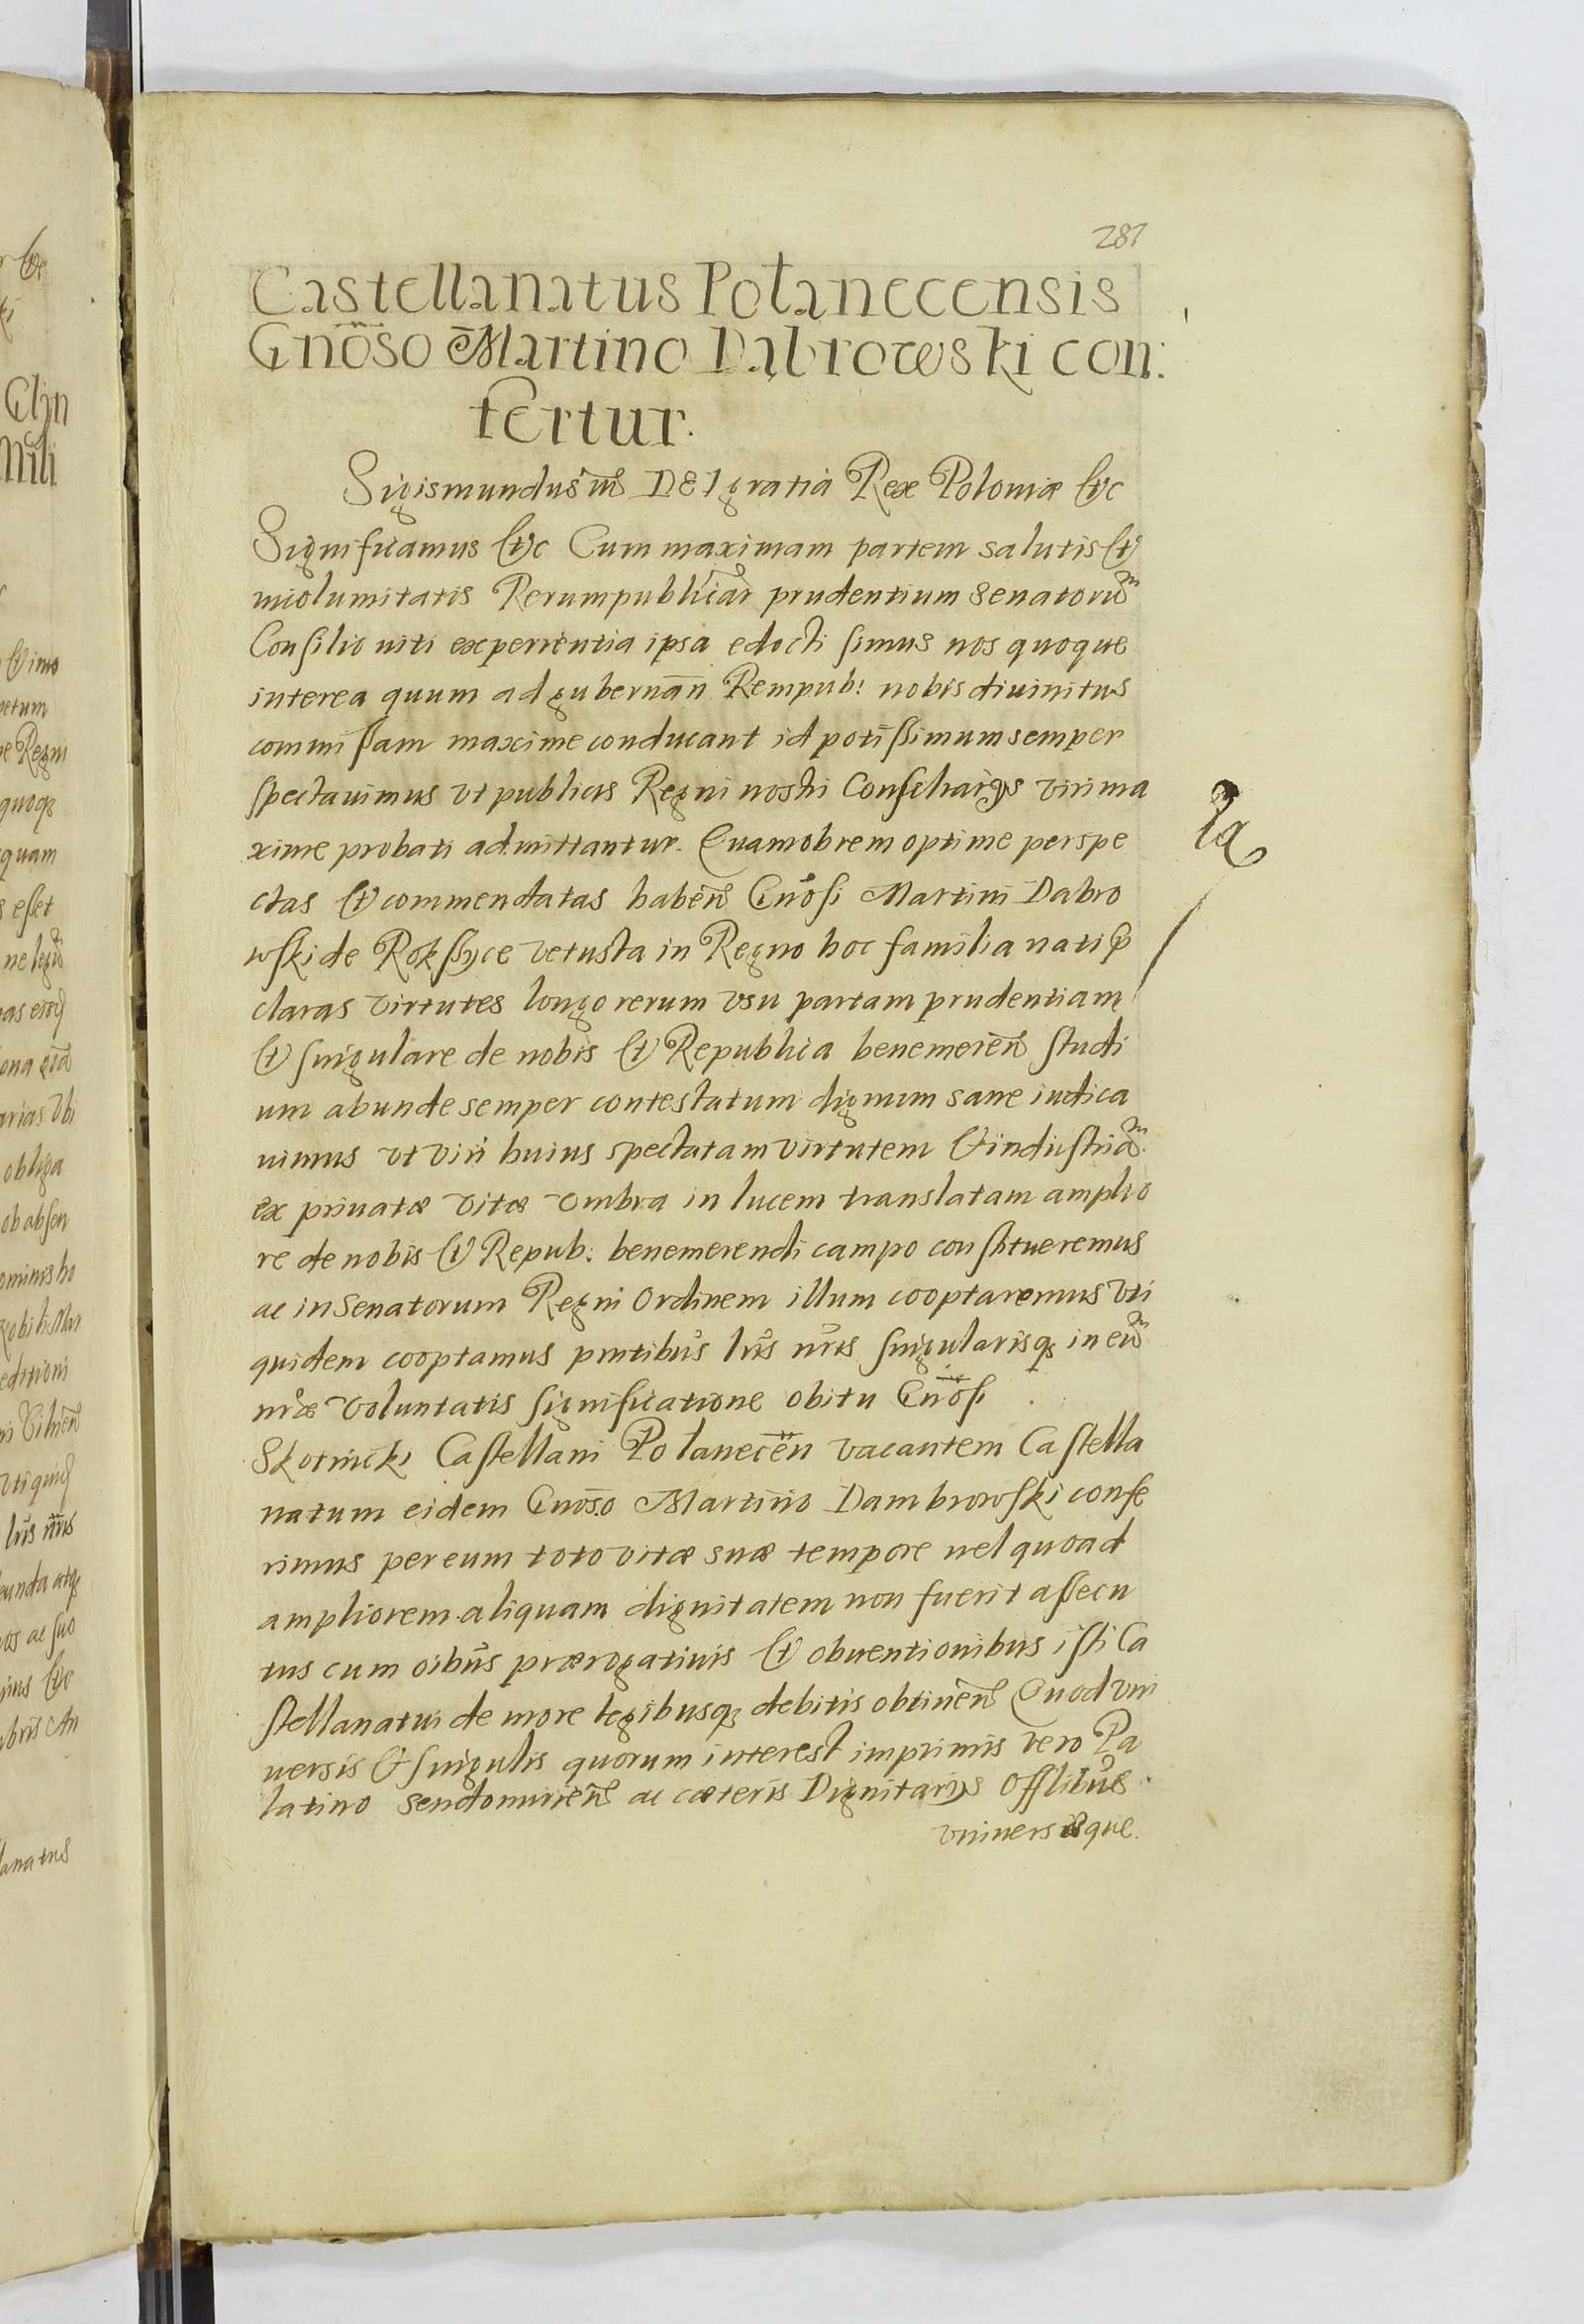 287
Castellanatus Połanecensis
Gnoso Martino Dąbrowski con:
fertur.
Sigismundus III DEI gratia Rex Poloniæ &c
Significamus &c Cum maximam partem salutis &
incolumitatis Rerumpublicar prudentium Senatorū
Consilio niti experientia ipsa edocti simus nos quoque
interea quum ad gubernan̄ Rempub: nobis diuinitus
commissam maxime conducant id potissimum semper
spectauimus vt publicis Regni nostri Consiliarijs viri ma
xime probati admittantur. Quamobrem optime perspe
ctas & commendatas haben̄ Gnosi Martini Dabro
wski de Rokssyce vetusta in Regno hoc familia nati p̄
claras virtutes longo rerum vsu partam prudentiam
& singulare de nobis & Republica benemeren̄ studi
um abunde semper contestatum dignum sane iudica
uimus vt viri huius spectatam virtutem & industriā
ex priuatæ vitæ vmbra in lucem translatam amplio
re de nobis & Repub: benemerendi campo constitueremus
ac in Senatorum Regni Ordinem illum cooptaremus vti
quidem cooptamus pntibus lris nris singularisq; in eū
nræ voluntatis significatione obitu Gnosi
Skotnicki Castellani Połanecen̄ vacantem Castella
natum eidem Gnoso Martino Dambrowski confe
rimus per eum toto vitæ suæ tempore uel quoad
ampliorem aliquam dignitatem non fuerit assecu
tus cum oibus prærogatiuis & obuentionibus isti Ca
stellanatui de more legibusq; debitis obtinen̄ Quod vni
uersis & singulis quorum interest imprimis vero Pa
latino Sendomirien̄ ac cæteris Dignitarijs Offlibus
vniuersisque.